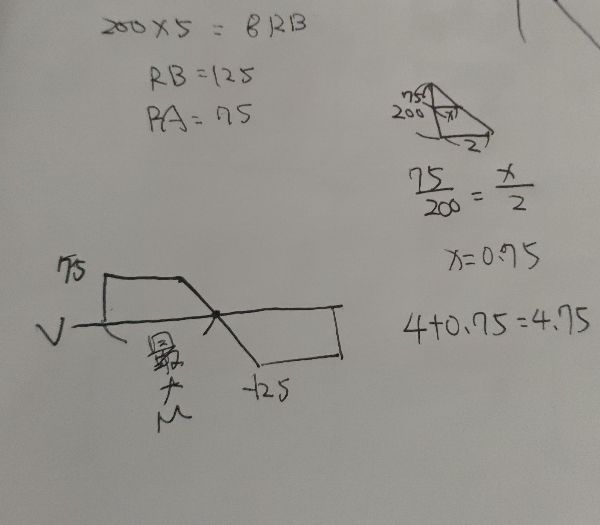 200×5 = 8RB
RB=125
RA=75
75
200
x
2
75/200 = x/2
x=0.75
4+0.75=4.75
75
V
最
大
M
-125